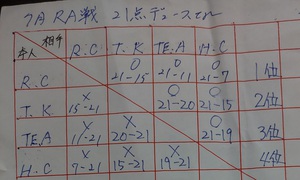 RA戦 21点デュース
本人 相手 R.C T.K TE.A H.C
R.C ○ 21-15 ○ 21-11 ○ 21-7 1位
T.K × 15-21 ○ 21-20 ○ 21-15 2位
TE.A × 11-21 × 20-21 ○ 21-19 3位
H.C × 7-21 × 15-21 × 19-21 4位